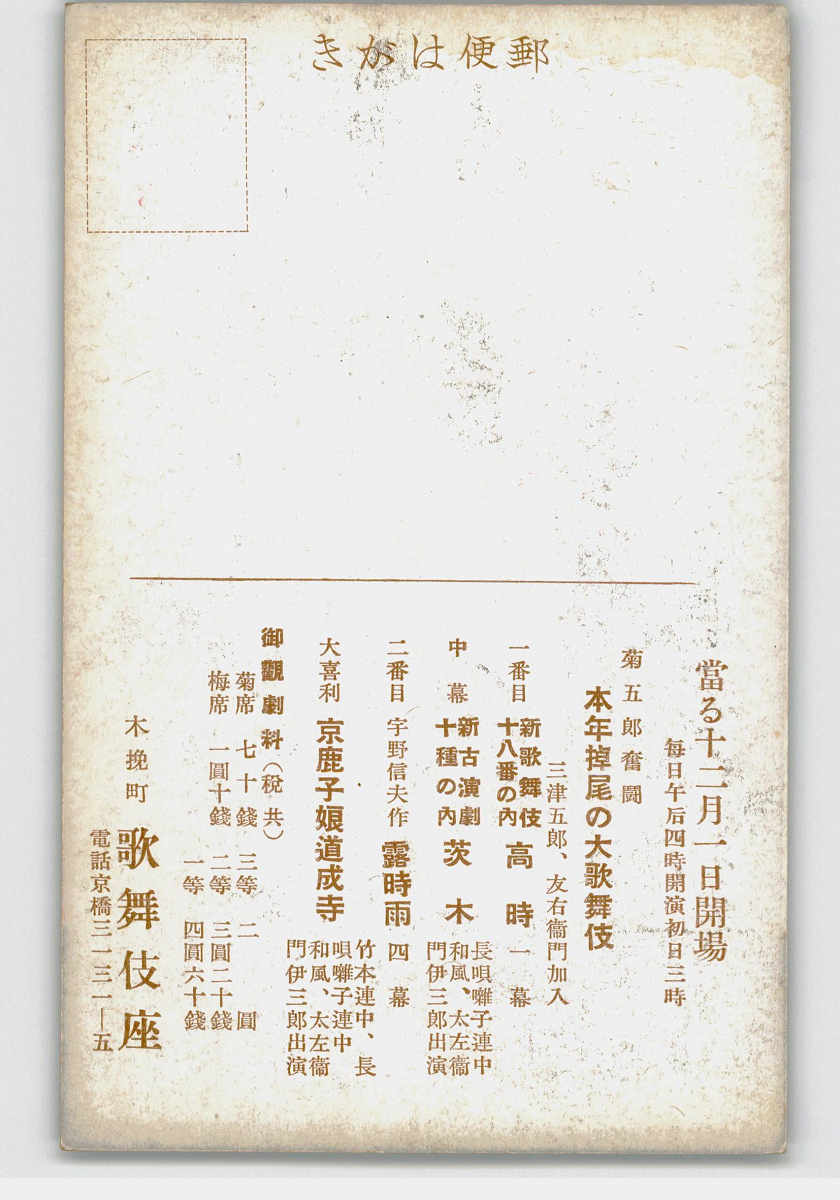 郵便はがき
當る十二月一日開場
毎日午后四時開演初日三時
菊五郎奮闘
本年掉尾の大歌舞伎
三津五郎、友右衞門加入
一番目 新歌舞伎十八番の內 高時 一幕
中幕 新古演劇十種の內 茨木 長唄囃子連中
和風、太左衞
門伊三郎出演
二番目 宇野信夫作 露時雨 四幕
大喜利 京鹿子娘道成寺 竹本連中、長
唄囃子連中
和風、太左衞
門伊三郎出演
御觀劇料(税共)
菊席 七十錢 三等 二圓
梅席 一圓十錢 二等 三圓二十錢
一等 四圓六十錢
木挽町 歌舞伎座
電話京橋三一三一―五